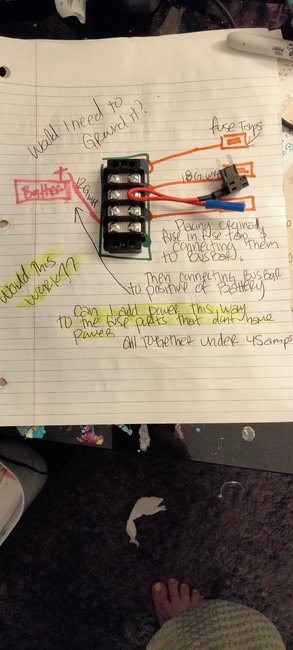 Would I need to
Ground it?
fuse Taps
18G wire
+
Battery
12G wire
Placing original
fuse in fuse taps &
connecting them
to BusBar.
Would This
work??
Then connecting BusBar
to positive of Battery
Can I add power this way
to the fuse parts that dont have
power.
all together under 45amps